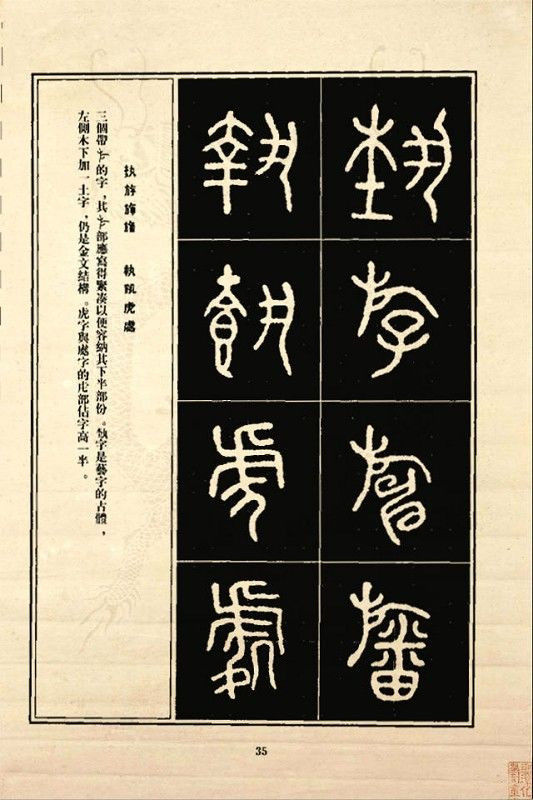 埶斿旝旛
執虎處
三個帶㫃的字，其㫃部應寫得緊湊以便容納其下半部份。埶字是藝字的古體，
左側木下加一土字，仍是金文結構。虎字與處字的虍部佔字高一半。
35